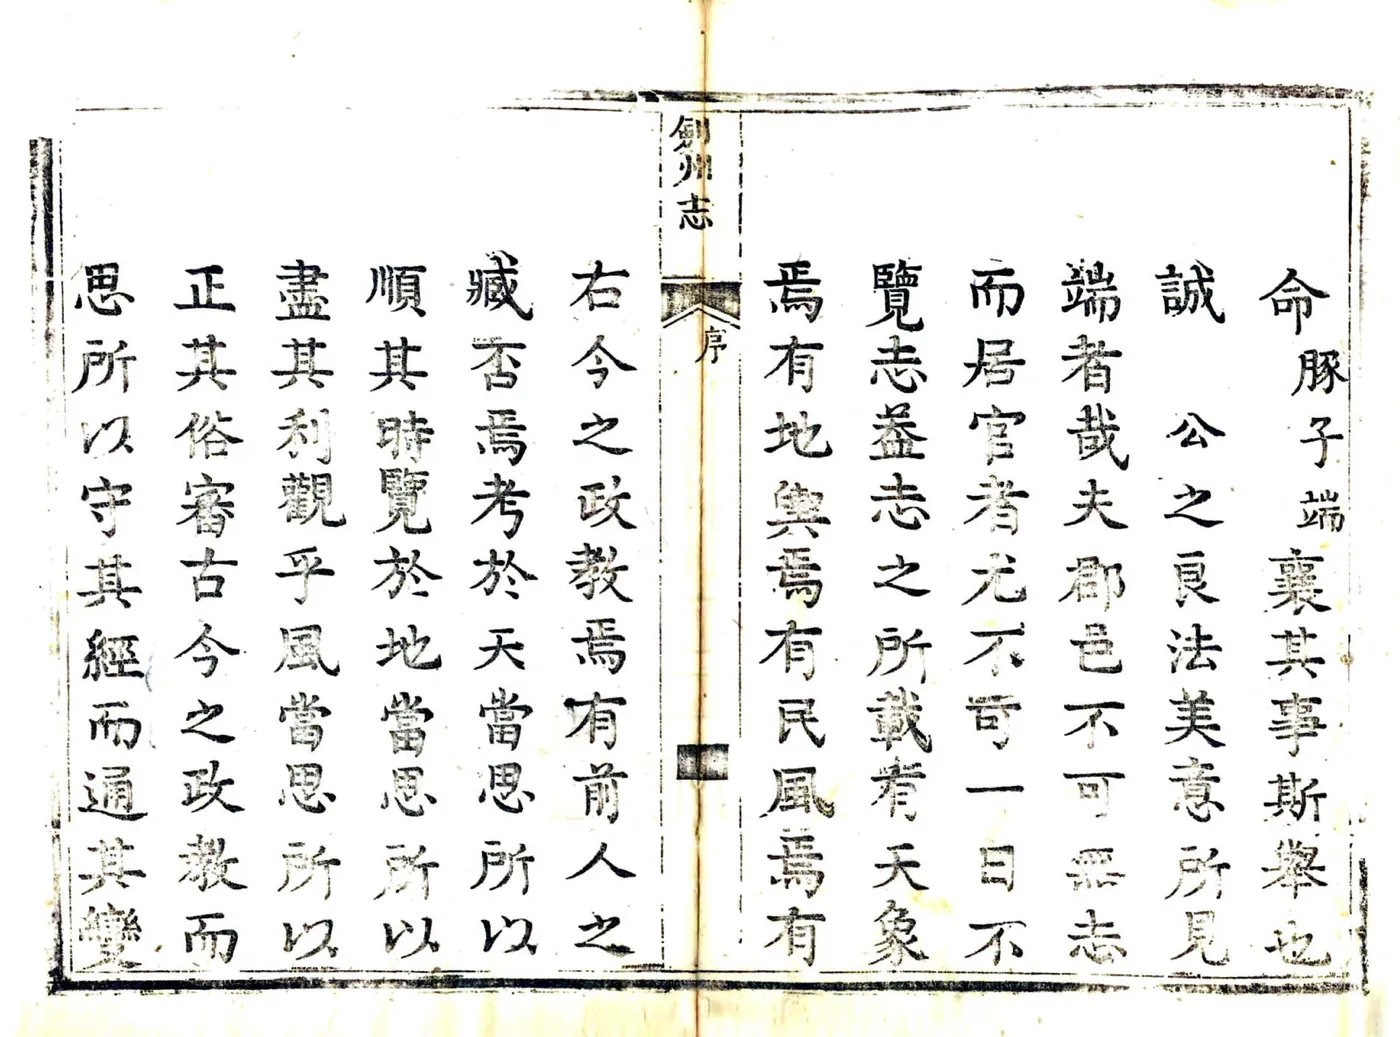 命豚子端襄其事斯舉也
誠 公之良法美意所見
端者哉夫郡邑不可無志
而居官者尤不可一日不
覽志葢志之所載有天象
焉有地輿焉有民風焉有
劍州志 序
右今之政教焉有前人之
臧否焉考於天當思所以
順其時覽於地當思所以
盡其利觀乎風當思所以
正其俗審古今之政教而
思所以守其經而通其變